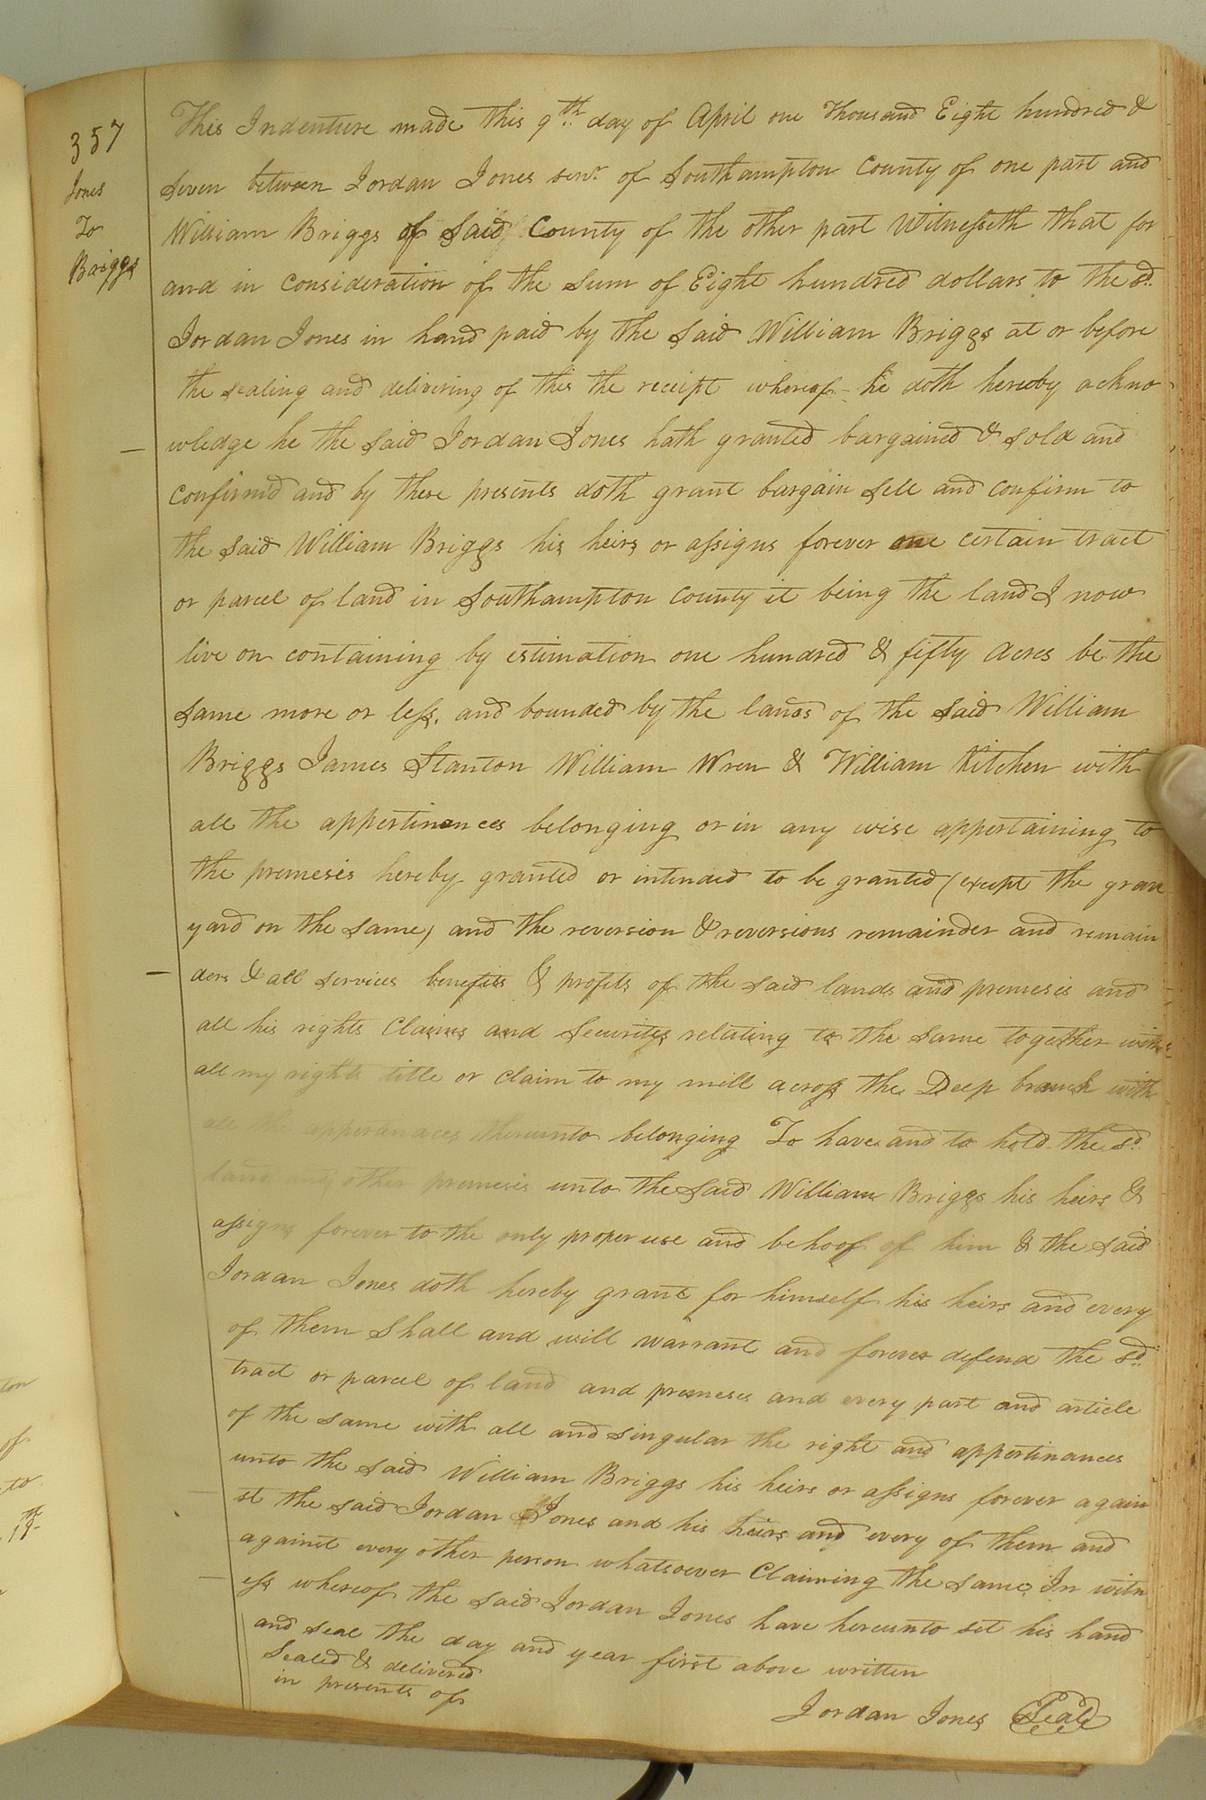 357
Jones
To
Briggs
This Indenture made this 9th day of April one Thousand Eight hundred &
seven between Jordan Jones senr. of Southampton County of one part and
William Briggs of said County of the other part Witnesseth that for
and in consideration of the sum of Eight hundred dollars to the sd.
Jordan Jones in hand paid by the said William Briggs at or before
the sealing and delivering of this the receipt whereof he doth hereby ackno
wledge he the said Jordan Jones hath granted bargained & sold and
confirmd and by these presents doth grant bargain sell and confirm to
the said William Briggs his heirs or assigns forever one certain tract
or parcel of land in Southampton County it being the land I now
live on containing by estimation one hundred & fifty acres be the
same more or less, and bounded by the lands of the said William
Briggs James Stanton William Wren & William Kitchen with
all the appertinences belonging or in any wise appertaining to
the premeses hereby granted or intended to be granted (except the grave
yard on the same) and the reversion & reversions remainder and remain
ders & all services benefits & profits of the said lands and premeses and
all his rights Claims and Securitys relating to the same together with
all my rights title or claim to my mill across the Deep branch with
all the appertinaces thereunto belonging To have and to hold the sd.
land and other premeses unto the said William Briggs his heirs &
assigns forever to the only proper use and behoof of him & the said
Jordan Jones doth hereby grant for himself his heirs and every
of them shall and will warrant and forever defend the sd.
tract or parcel of land and premeses and every part and article
of the same with all and singular the right and appertinances
unto the said William Briggs his heirs or assigns forever again
st the said Jordan Jones and his heirs and every of them and
against every other person whatsoever Claiming the same In witn
ess whereof the said Jordan Jones have hereunto set his hand
and seal the day and year first above written
Sealed & delivered
in presents of
Jordan Jones Seal
ton
of
to
19th